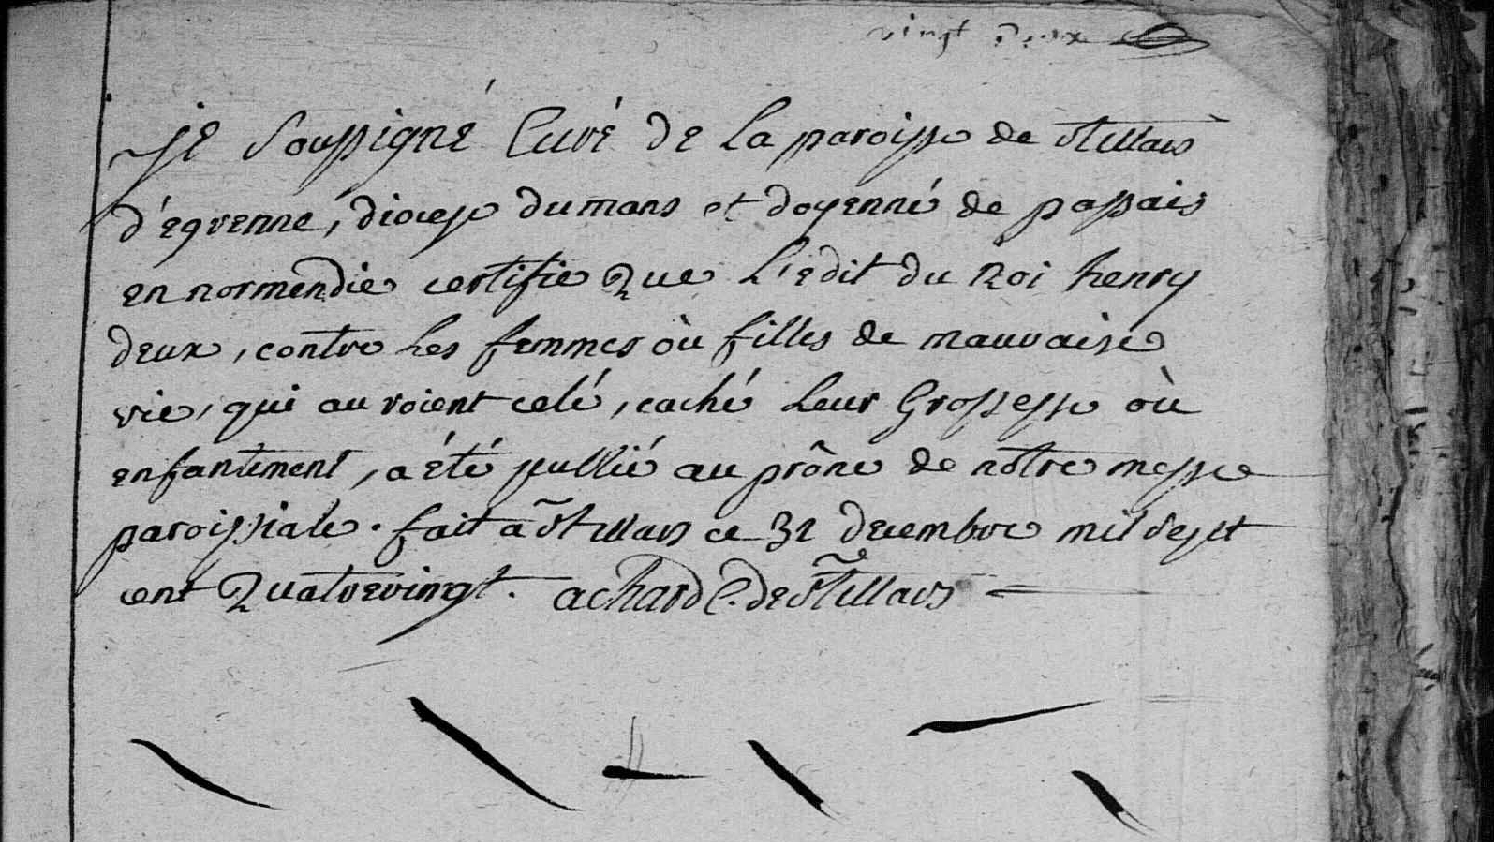 vingt deux
Je soussigné Curé de la paroisse de st illais
d'Eqvenne, diocese du mans et doyenné de passais
en normendie certifie que L'edit du Roi henry
deux, contre les femmes où filles de mauvaise
vie, qui auroient celé, caché leur Grossesse où
enfantement, a été publié au prône de notre messe
paroissiale. fait a st illais ce 31 decembre mil sept
cent Quatrevingt. achard C. de st illais